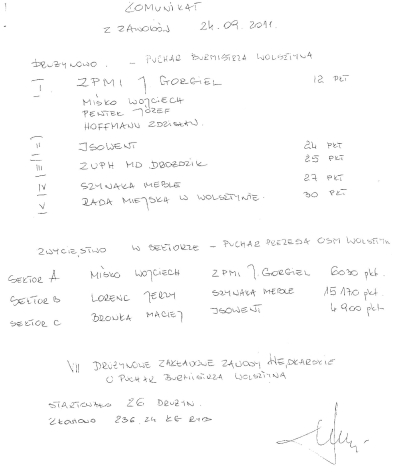 KOMUNIKAT
Z ZAWODÓW 24.09.2011.
DRUŻYNOWO. - PUCHAR BURMISTRZA WOLSZTYNA
I ZPMI J GORGIEL 12 PKT
MIŚKO WOJCIECH
PENTEK JÓZEF
HOFFMANN ZDZISŁAW.
II ISOWENT 24 PKT
III ZUPH MD DROŻDZIK 25 PKT
IV SZYNAKA MEBLE 27 PKT
V RADA MIEJSKA W WOLSZTYNIE. 30 PKT
ZWYCIĘSTWO W SEKTORZE - PUCHAR PREZESA OSM WOLSZTYN
SEKTOR A MIŚKO WOJCIECH ZPMI J. GORGIEL 6030 pkt.
SEKTOR B LORENC JERZY SZYNAKA MEBLE 15170 pkt.
SEKTOR C BROWKA MACIEJ ISOWENT 4900 pkt.
VII DRUŻYNOWE ZAKŁADOWE ZAWODY WĘDKARSKIE
O PUCHAR BURMISTRZA WOLSZTYNA
STARTOWAŁO 26 DRUŻYN.
ZŁOWIONO 236,24 KG RYB